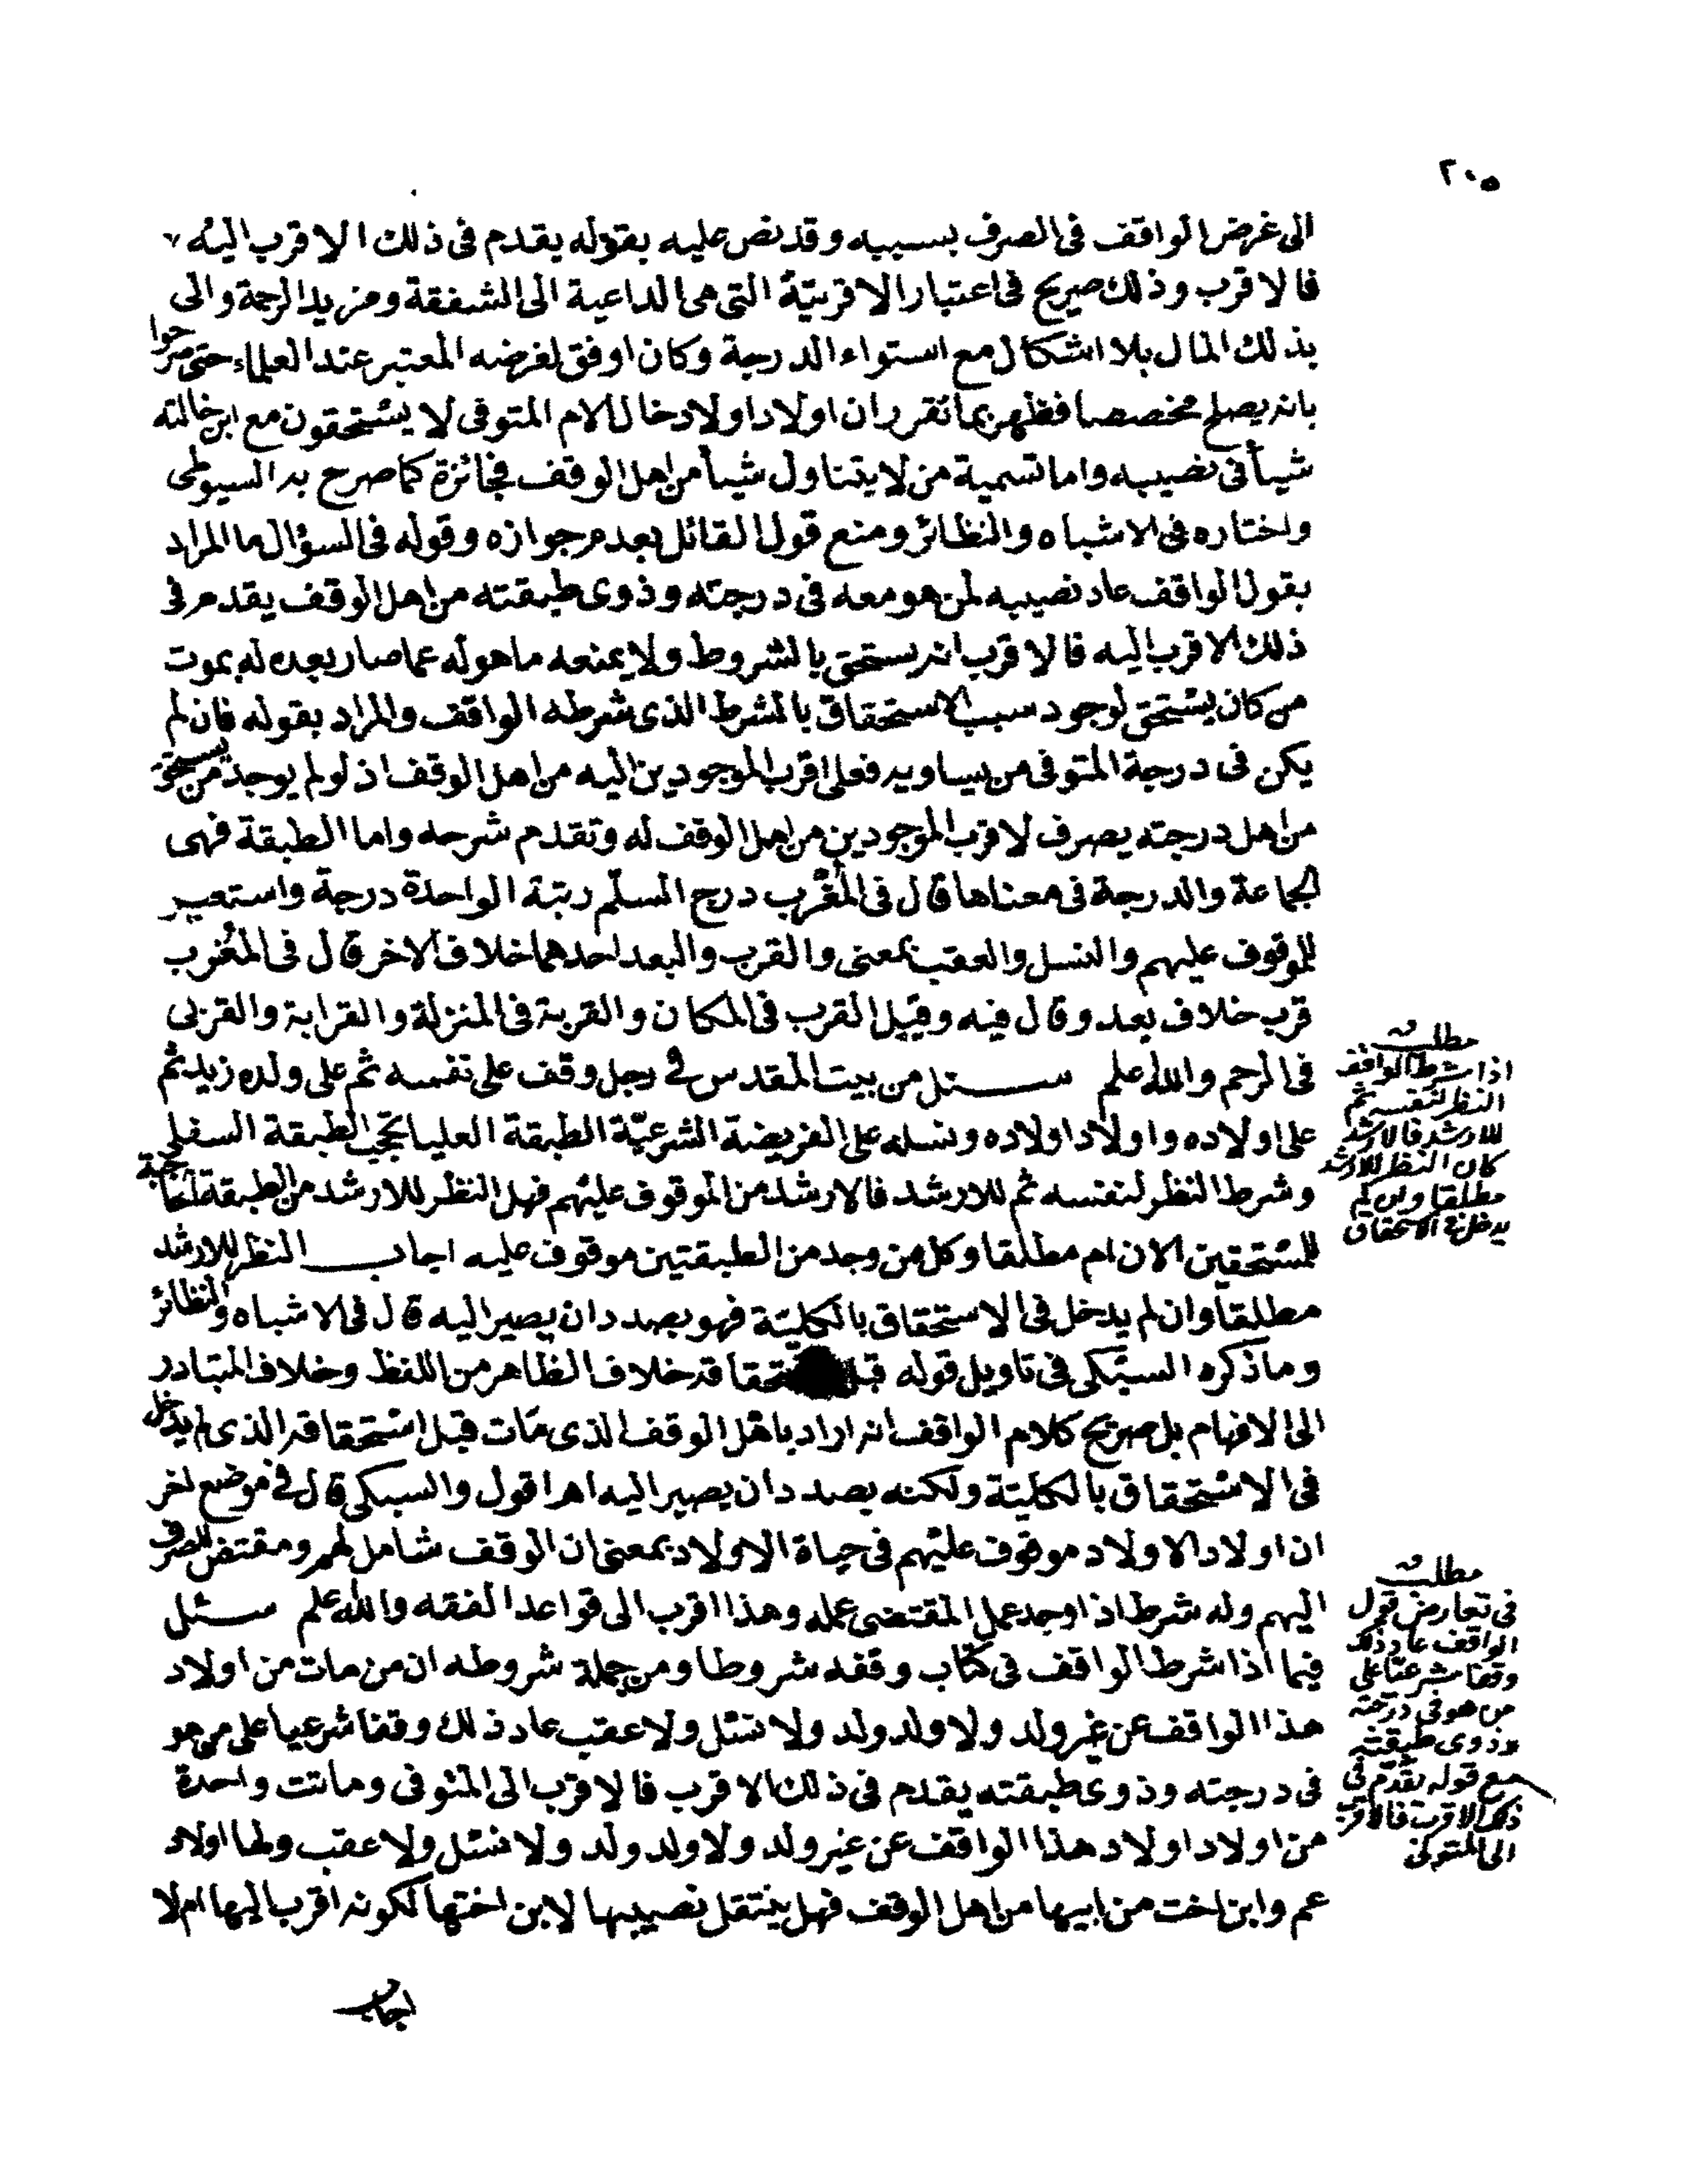 ٢٠٥
الى غرض الواقف فى الصرف بسببه وقد نص عليه بقوله يقدم فى ذلك الاقرب اليه
فالاقرب وذلك صريح فى اعتبار الاقربيّة التى هى الداعية الى الشفقة ومزيد الرحمة والى
بذلك المال بلا اشكال مع استواء الدرجة وكان اوفق لغرضه المعتبر عند العلماء حتى صرحوا
بانه يصلح مخصصا فظهر بما تقرر ان اولاد اولاد خال للام المتوفى لا يستحقون مع ابن خالته
شيأ فى نصيبه واما تسمية من لا يتناول شيأ من اهل الوقف فجائزة كما صرح به السيوطى
واختاره فى الاشباه والنظائر ومنع قول القائل بعدم جوازه وقوله فى السؤال ما المراد
بقول الواقف عاد نصيبه لمن هو معه فى درجته وذوى طبقته من اهل الوقف يقدم فى
ذلك الاقرب اليه فالاقرب انه يستحق بالشروط ولا يمنعه ما هو له عما صار بعده له بموت
من كان يستحق لوجود سبب الاستحقاق بالشرط الذى شرطه الواقف والمراد بقوله فان لم
يكن فى درجة المتوفى من يساويه فعلى اقرب الموجودين اليه من اهل الوقف اذ لو لم يوجد من يستحق
من اهل درجته يصرف لاقرب الموجودين من اهل الوقف له وتقدم شرحه واما الطبقة فهى
الجماعة والدرجة فى معناها قال فى المغرب درج السلّم رتبة الواحدة درجة واستعير
للموقوف عليهم والنسل والعقب بمعنى والقرب والبعد احدهما خلاف الاخر قال فى المغرب
قرب خلاف بعد وقال فيه وقيل القرب فى المكان والقربة فى المنزلة والقرابة والقربى
فى الرحم والله اعلم سئل من بيت المقدس فى رجل وقف على نفسه ثم على ولده زيد ثم
على اولاده واولاد اولاده ونسله على الفريضة الشرعيّة الطبقة العليا تحجب الطبقة السفلى
وشرط النظر لنفسه ثم للارشد فالارشد من الموقوف عليهم فهل النظر للارشد من الطبقة الحاجبة
للمستحقين الان ام مطلقا وكل من وجد من الطبقتين موقوف عليه اجاب النظر للارشد
مطلقا وان لم يدخل فى الاستحقاق بالكليّة فهو بصدد ان يصير اليه قال فى الاشباه والنظائر
وما ذكره السبكى فى تاويل قوله قبل استحقاقه خلاف الظاهر من اللفظ وخلاف المتبادر
الى الافهام بل صريح كلام الواقف انه اراد باهل الوقف الذى مات قبل استحقاقه الذى لم يدخل
فى الاستحقاق بالكليّة ولكنه بصدد ان يصير اليه اهـ اقول والسبكى قال فى موضع اخر
ان اولاد الاولاد موقوف عليهم فى حياة الاولاد بمعنى ان الوقف شامل لهم ومقتض للصرف
اليهم وله شرط اذا وجد عمل المقتضى عمله وهذا اقرب الى قواعد الفقه والله اعلم سئل
فيما اذا شرط الواقف فى كتاب وقفه شروطا ومن جملة شروطه ان من مات من اولاد
هذا الواقف عن غير ولد ولا ولد ولد ولا نسل ولا عقب عاد ذلك وقفا شرعيا على من هو
فى درجته وذوى طبقته يقدم فى ذلك الاقرب فالاقرب الى المتوفى وماتت واحدة
من اولاد اولاد هذا الواقف عن غير ولد ولا ولد ولد ولا نسل ولا عقب ولها اولاد
عم وابن اخت من ابيها من اهل الوقف فهل ينتقل نصيبها لابن اختها لكونه اقرب اليها ام لا
اجاب
مطلب
اذا شرط الواقف
النظر لنفسه ثم
للارشد فالارشد
كان النظر للارشد
مطلقا وان لم
يدخل فى الاستحقاق
مطلب
فى تعارض قول
الواقف عاد ذلك
وقفا شرعيّا على
من هو فى درجته
وذوى طبقته
مع قوله يقدم فى
ذلك الاقرب فالاقرب
الى المتوفى